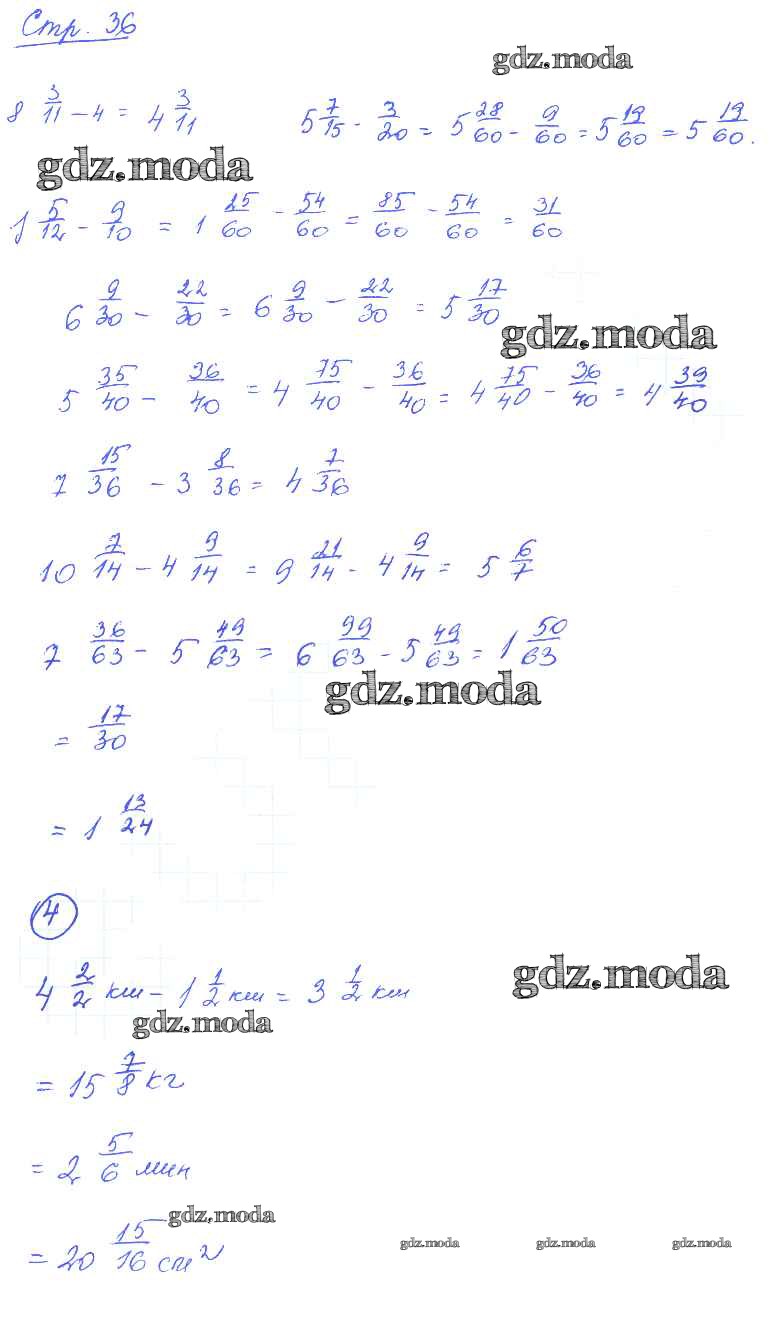 Стр. 36
gdz.moda
8 3/11 - 4 = 4 3/11 5 7/15 - 3/20 = 5 28/60 - 9/60 = 5 19/60 = 5 19/60.
gdz.moda
1 5/12 - 9/10 = 1 25/60 - 54/60 = 85/60 - 54/60 = 31/60
6 9/30 - 22/30 = 6 9/30 - 22/30 = 5 17/30
gdz.moda
5 35/40 - 36/40 = 4 75/40 - 36/40 = 4 75/40 - 36/40 = 4 39/40
7 15/36 - 3 8/36 = 4 7/36
10 7/14 - 4 9/14 = 9 21/14 - 4 9/14 = 5 6/7
7 36/63 - 5 49/63 = 6 99/63 - 5 49/63 = 1 50/63
gdz.moda
= 17/30
= 1 13/24
4
4 2/2 км - 1 1/2 км = 3 1/2 км
gdz.moda
gdz.moda
= 15 7/8 кг
= 2 5/6 мин
gdz.moda
= 20 15/16 см²
gdz.moda gdz.moda gdz.moda